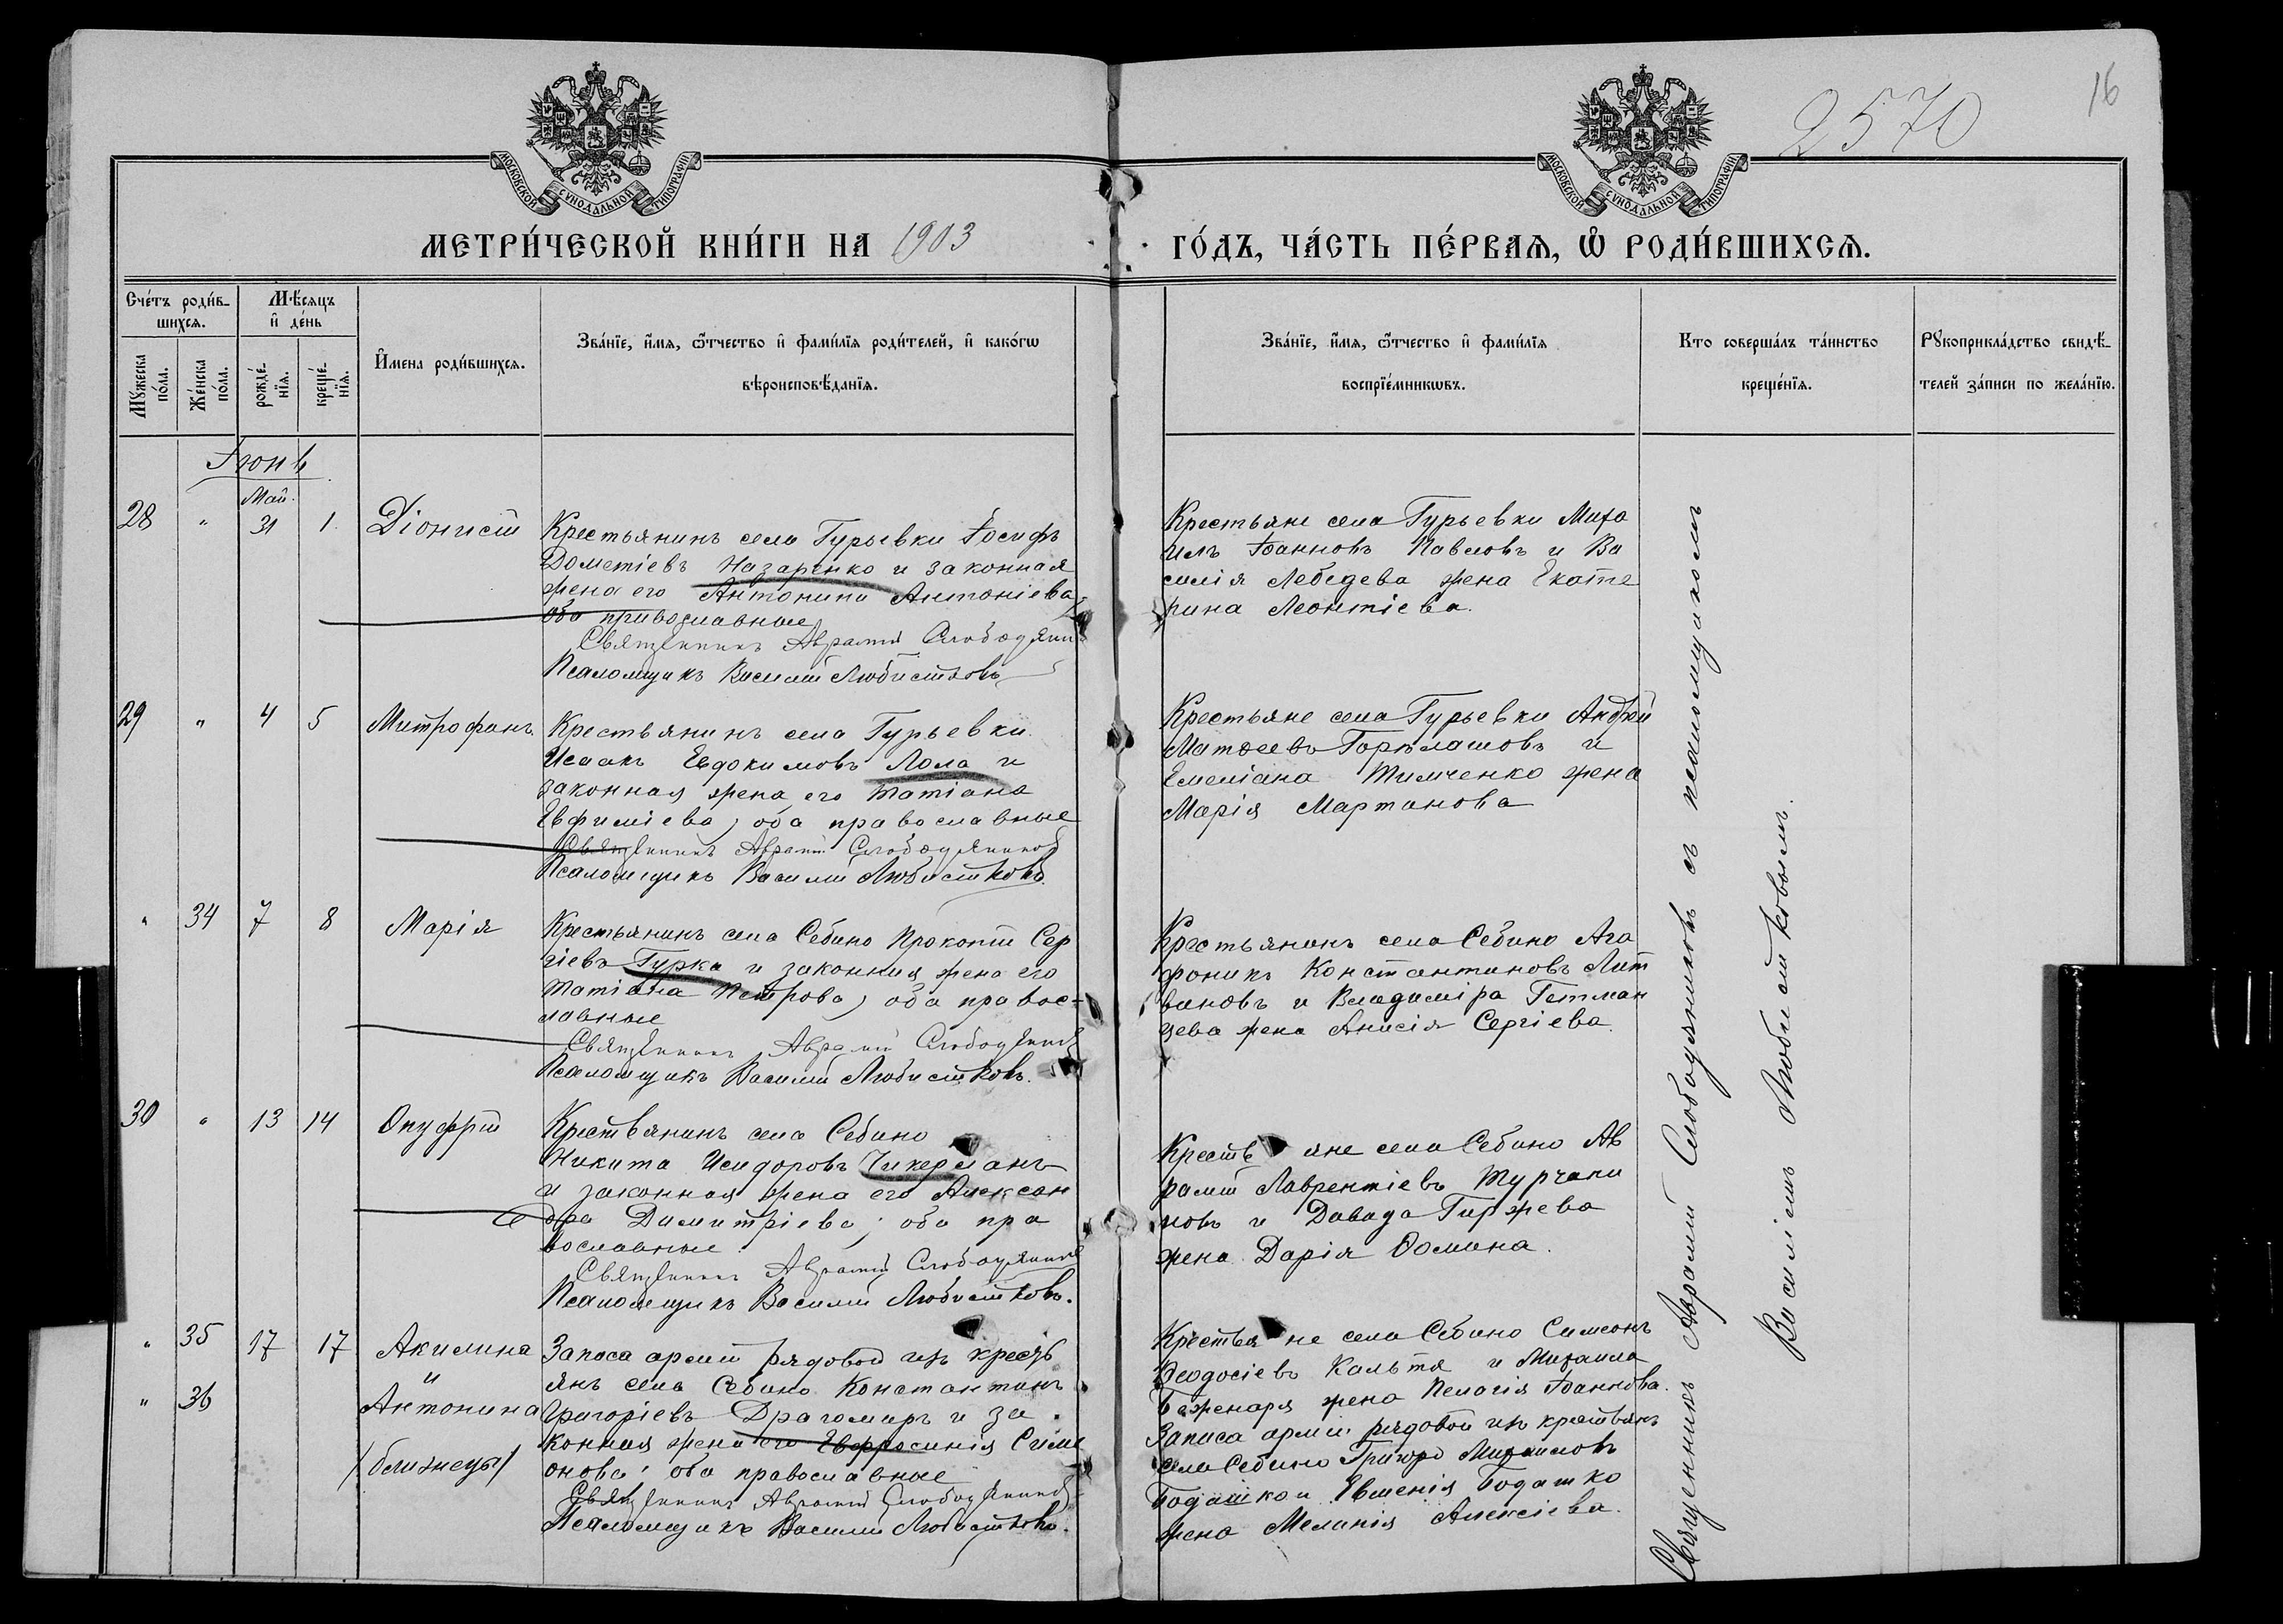 2570
16
МОСКОВСКОЙ СѴНОДАЛЬНОЙ ТИПОГРАФІИ
МОСКОВСКОЙ СѴНОДАЛЬНОЙ ТИПОГРАФІИ
МЕТРИ́ЧЕСКОЙ КНИ́ГИ НА 1903
ГО́ДЪ, ЧА́СТЬ ПЕ́РВАѦ, Ѽ РОДИ́ВШИХСѦ.
Сче́тъ роди́в-
шихсѧ.
Мꙋ́жеска по́ла.
Же́нска по́ла.
Мѣ́сѧцъ
и҆ де́нь
рожде́-
нїѧ.
креще́-
нїѧ.
И҆мена̀ роди́вшихсѧ.
Зва́нїе, и҆́мѧ, ѻ҆́тчество и҆ фами́лїѧ роди́телей, и҆ како́гѡ
вѣроисповѣ́данїѧ.
Зва́нїе, и҆́мѧ, ѻ҆́тчество и҆ фами́лїѧ
воспрїе́мникѡвъ.
Кто̀ соверша́лъ та́инство
креще́нїѧ.
Рꙋкоприкла́дство свидѣ́-
телей за́писи по жела́нїю.
Іюнь
Май
28 " 31 1 Діонисій
Крестьянинъ села Гурьевки Іосифъ
Дометіевъ Назаренко и законная
жена его Антонина Антоніева
оба православные
Священникъ Аврамій Слободяник
Псаломщикъ Василій Любистковъ
Крестьяне села Гурьевки Миха
илъ Іоанновъ Павловъ и Ва
силія Лебедева жена Екате
рина Леонтіева.
29 " 4 5 Митрофанъ
Крестьянинъ села Гурьевки
Исаакъ Евдокимовъ Лола и
законная жена его Татіана
Евфиміева, оба православные
Священникъ Аврамій Слободяников
Псаломщикъ Василій Любистковъ
Крестьяне села Гурьевки Андрей
Матѳеевъ и
Емеліана Тимченко жена
Марія Мартинова
" 34 7 8 Марія
Крестьянинъ села Себино Прокопій Сер
гіевъ Гурка и законная жена его
Татіана Петрова, оба правос-
лавные
Священникъ Аврамій Слободяников
Псаломщикъ Василій Любистковъ.
Крестьянинъ села Себино Ага
фоникъ Константиновъ Лит
виновъ и Владиміра Гетман
цева жена Анисія Сергіева.
30 " 13 14 Онуфрій
Крестьянинъ села Себино
Никита Исидоровъ Чикерланъ
и законная жена его Алексан
дра Димитріева; оба пра
вославные
Священникъ Аврамій Слободяников
Псаломщикъ Василій Любистковъ.
Крестьяне села Себино Ав
рамій Лаврентіевъ Турчани
новъ и Давида Гиржева
жена Дарія Ѳомина.
" 35 17 17 Акилина
и
" 36 Антонина
/близнецы/
Запаса арміи рядовой изъ кресть
янъ села Себино Константинъ
Григоріевъ Драгомиръ и за
конная жена его Евфросинія Симе
онова; оба православные
Священникъ Аврамій Слободяников
Псаломщикъ Василій Любистковъ.
Крестьяне села Себино Симеонъ
Ѳеодосіевъ Кальтя и Михаила
Баженаря жена Пелагія Іоаннова.
Запаса арміи рядовой изъ крестьянъ
села Себино Григорій Михаиловъ
Бодашко и Евменія Бодашко
жена Меланія Алексіева.
Священникъ Аврамій Слободяниковъ съ псаломщикомъ
Василіемъ Любистковымъ.